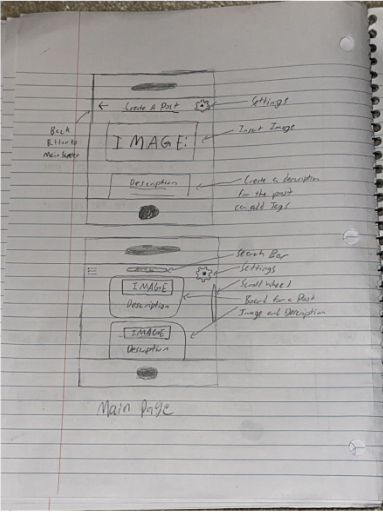 ← Create A Post
Settings
Back
Button to
Main Screen
IMAGE:
Input Image
Description
Create a description
for the post
can add Tags
Search Bar
Settings
Scroll Wheel
IMAGE
Description
Board for a Post
Image and Description
IMAGE
Description
Main Page